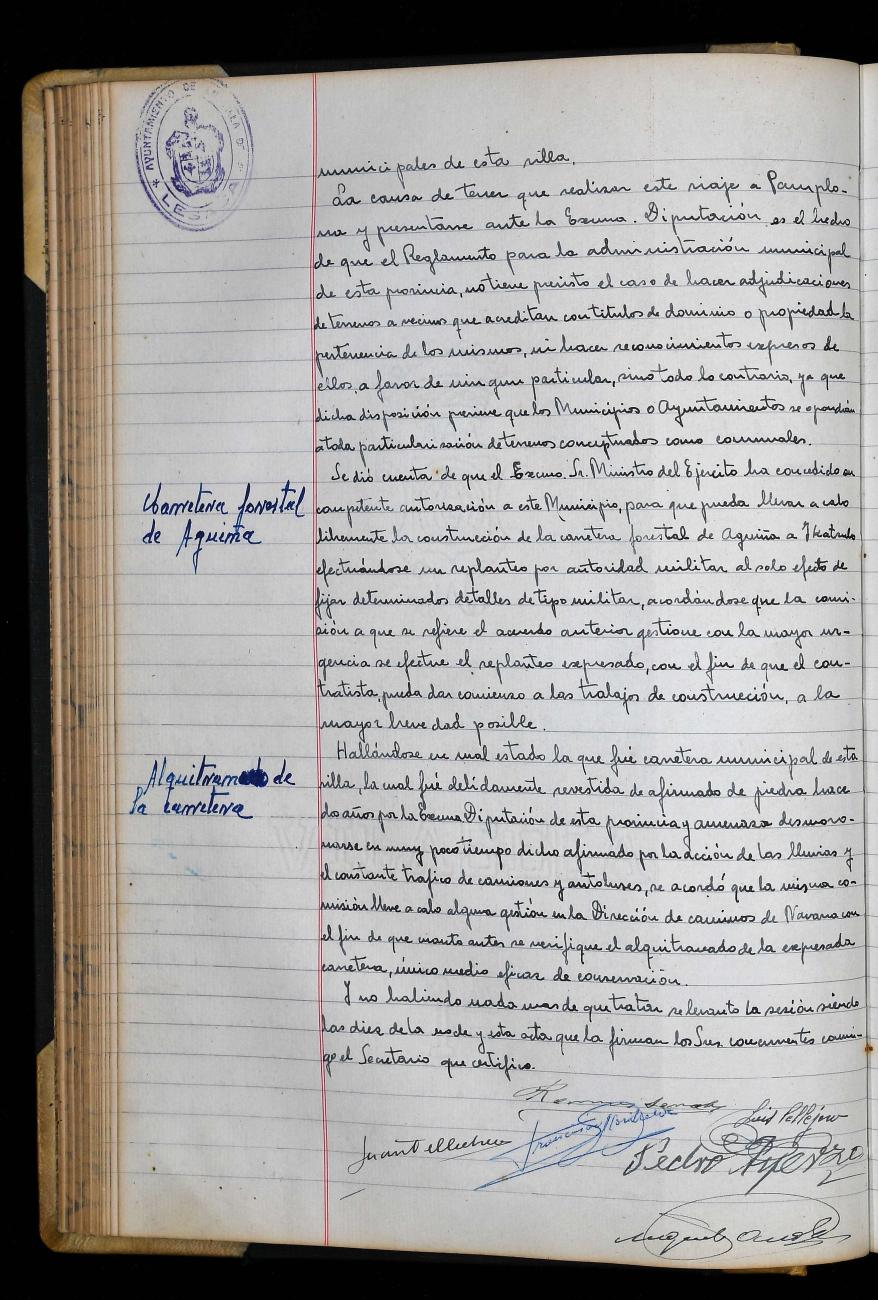 AYUNTAMIENTO DE LA VILLA DE
LESACA
municipales de esta villa.
La causa de tener que realizar este viaje a Pamplo-
na y presentarse ante la Excma. Diputación, es el hecho
de que el Reglamento para la administración municipal
de esta provincia, no tiene previsto el caso de hacer adjudicaciones
de terrenos a vecinos que acreditan con titulos de dominio o propiedad la
pertenencia de los mismos, ni hacer reconocimientos expresos de
ellos, a favor de ningun particular, sino todo lo contrario, ya que
dicha disposición previene que los Municipios o Ayuntamientos se opondrán
a toda particularisación de terrenos conceptuados como comunales.
Carretera forestal
de Aguiña
Se dió cuenta de que el Excmo. Sr. Ministro del Ejercito ha concedido su
competente autorisación a este Municipio, para que pueda llevar a cabo
libremente la construcción de la carretera forestal de Aguiña a
efectuándose un replanteo por autoridad militar al solo efecto de
fijar determinados detalles de tipo militar, acordándose que la comi-
sión a que se refiere el acuerdo anterior gestione con la mayor ur-
gencia se efectue el replanteo expresado, con el fin de que el con-
tratista, pueda dar comienzo a las trabajos de construcción, a la
mayor breve dad posible.
Alquitranado de
la carretera
Hallándose en mal estado la que fué carretera municipal de esta
villa, la cual fué debidamente revestida de afirmado de piedra hace
dos años por la Excma Diputación de esta provincia y amenaza desmoro-
narse en muy poco tiempo dicho afirmado por la acción de las lluvias y
el constante trafico de camiones y autobuses, se acordó que la misma co-
misión lleve a cabo alguna gestión en la Dirección de caminos de Navarra con
el fin de que cuanto antes se verifique el alquitranado de la expresada
carretera, único medio eficaz de conservación.
Y no habiendo nada mas de que tratar se levanto la sesión siendo
las diez de la noche y esta acta que la firman los Sres. concurrentes conmi-
go el Secretario que certifico.
Luis Pellejero
Juan
Francisco
Pedro
Miguel